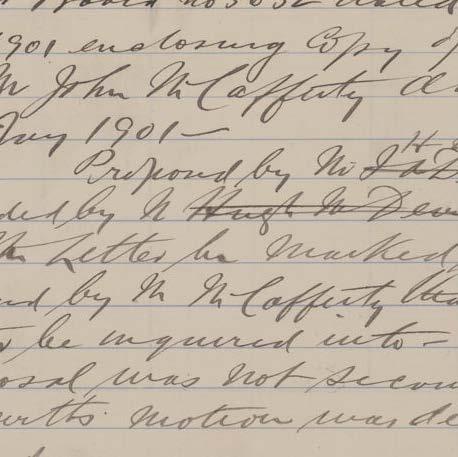 1901 enclosing Copy of
Mr John McCafferty
1901 —
Proposed by Mr
by Mr Hugh Mc
Letter be marked
by Mr McCafferty tha
be inquired into —
osal was not secon
motion was de